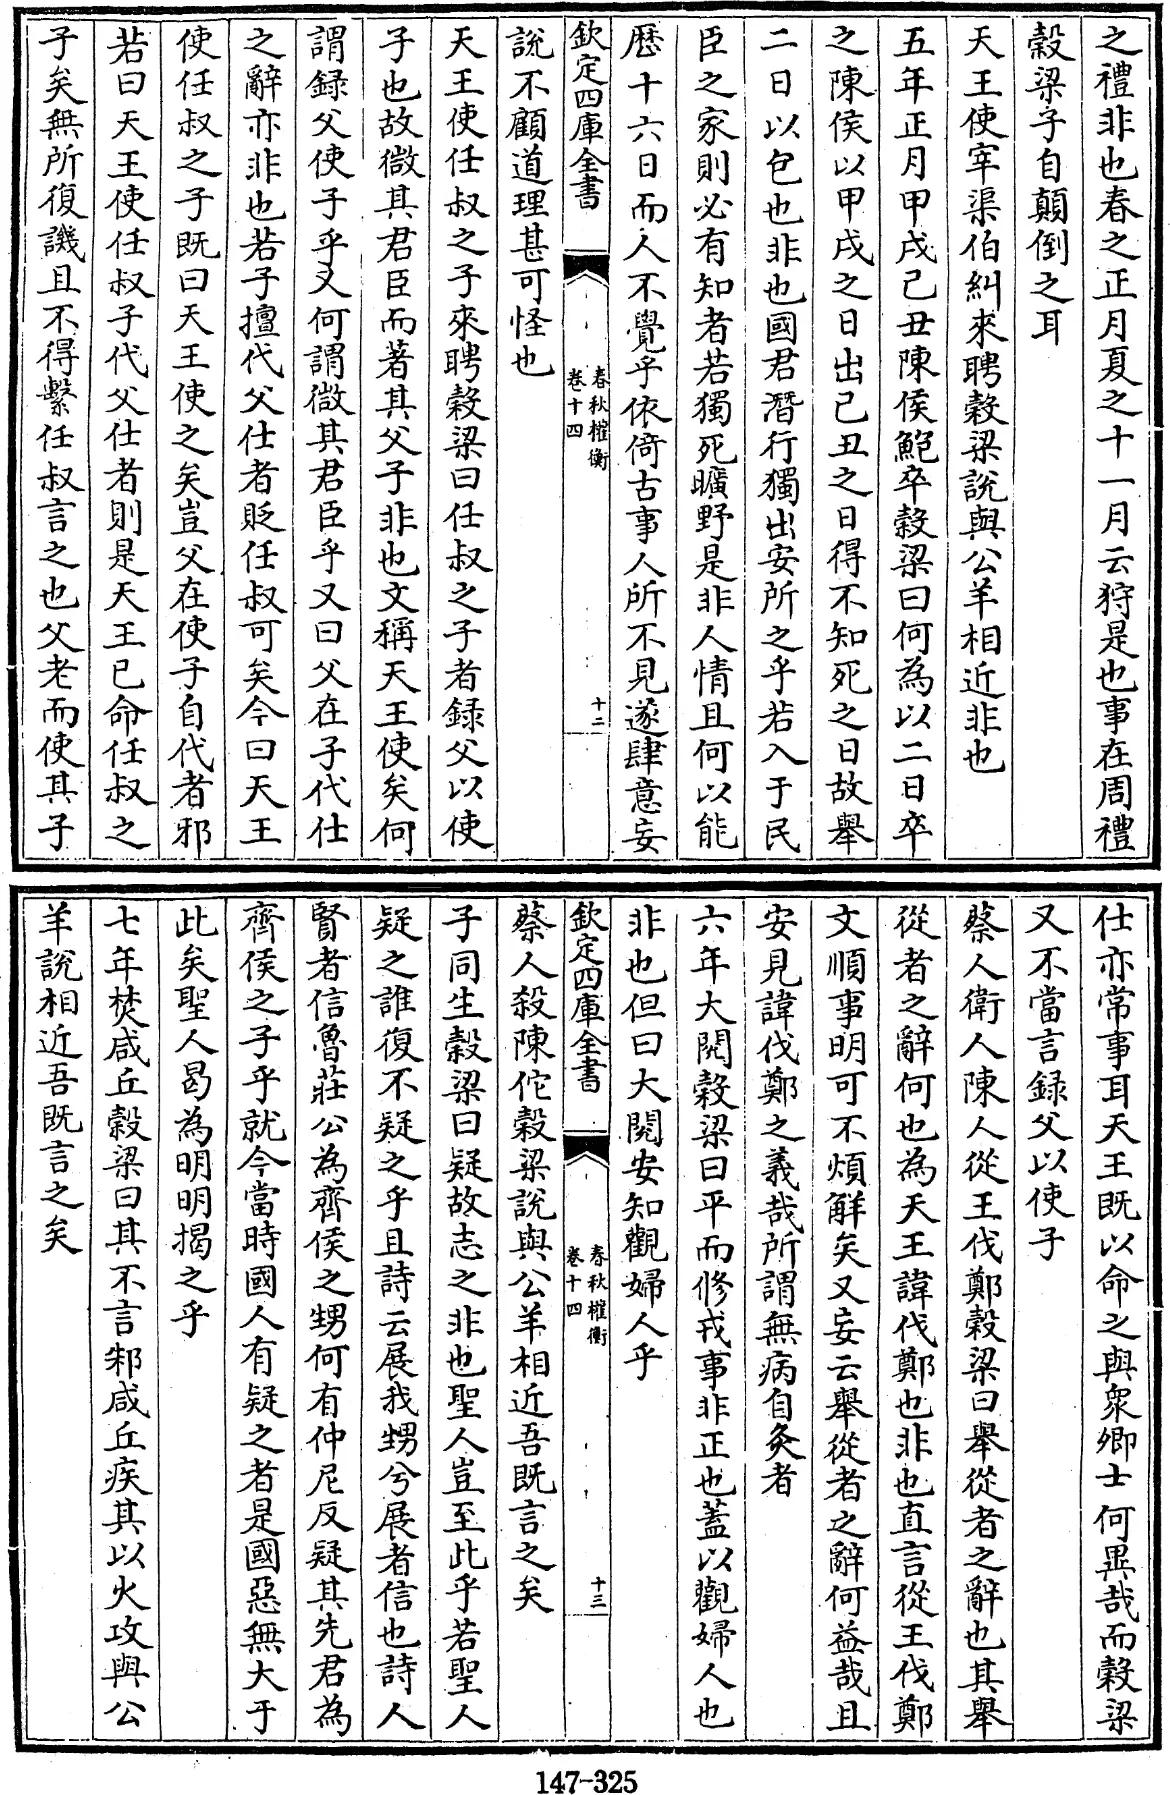 之禮非也春之正月夏之十一月云狩是也事在周禮
穀梁子自顛倒之耳
天王使宰渠伯糾來聘穀梁說與公羊相近非也
五年正月甲戌己丑陳侯鮑卒穀梁曰何為以二日卒
之陳侯以甲戌之日出己丑之日得不知死之日故舉
二日以包也非也國君潛行獨出安所之乎若入于民
臣之家則必有知者若獨死曠野是非人情且何以能
歴十六日而人不覺乎依倚古事人所不見遂肆意妄
欽定四庫全書
春秋權衡
卷十四
十二
說不顧道理甚可怪也
天王使任叔之子來聘穀梁曰任叔之子者録父以使
子也故微其君臣而著其父子非也文稱天王使矣何
謂録父使子乎又何謂微其君臣乎又曰父在子代仕
之辭亦非也若子擅代父仕者貶任叔可矣今曰天王
使任叔之子既曰天王使之矣豈父在使子自代者邪
若曰天王使任叔子代父仕者則是天王已命任叔之
子矣無所復譏且不得繫任叔言之也父老而使其子
仕亦常事耳天王既以命之與衆卿士何異哉而穀梁
又不當言録父以使子
蔡人衛人陳人從王伐鄭穀梁曰舉從者之辭也其舉
從者之辭何也為天王諱伐鄭也非也直言從王伐鄭
文順事明可不煩解矣又妄云舉從者之辭何益哉且
安見諱伐鄭之義哉所謂無病自灸者
六年大閱穀梁曰平而修戎事非正也蓋以觀婦人也
非也但曰大閱安知觀婦人乎
欽定四庫全書
春秋權衡
卷十四
十三
蔡人殺陳佗穀梁說與公羊相近吾既言之矣
子同生穀梁曰疑故志之非也聖人豈至此乎若聖人
疑之誰復不疑之乎且詩云展我甥兮展者信也詩人
賢者信魯莊公為齊侯之甥何有仲尼反疑其先君為
齊侯之子乎就今當時國人有疑之者是國惡無大于
此矣聖人曷為明明揭之乎
七年焚咸丘穀梁曰其不言邾咸丘疾其以火攻與公
羊說相近吾既言之矣
147-325